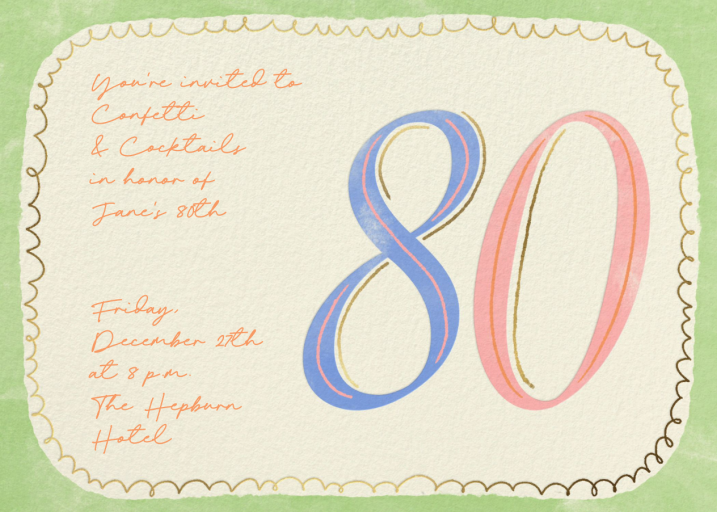 You're invited to
Confetti
& Cocktails
in honor of
Jane's 80th
80
Friday,
December 27th
at 8 p.m.
The Hepburn
Hotel